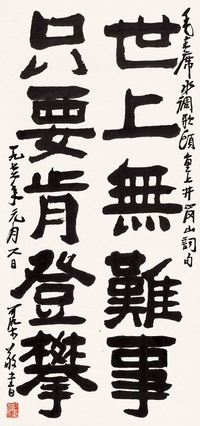 世上無難事
只要肯登攀
毛主席水調歌頭重上井岡山詞句
一九七六年元月一日
敬書